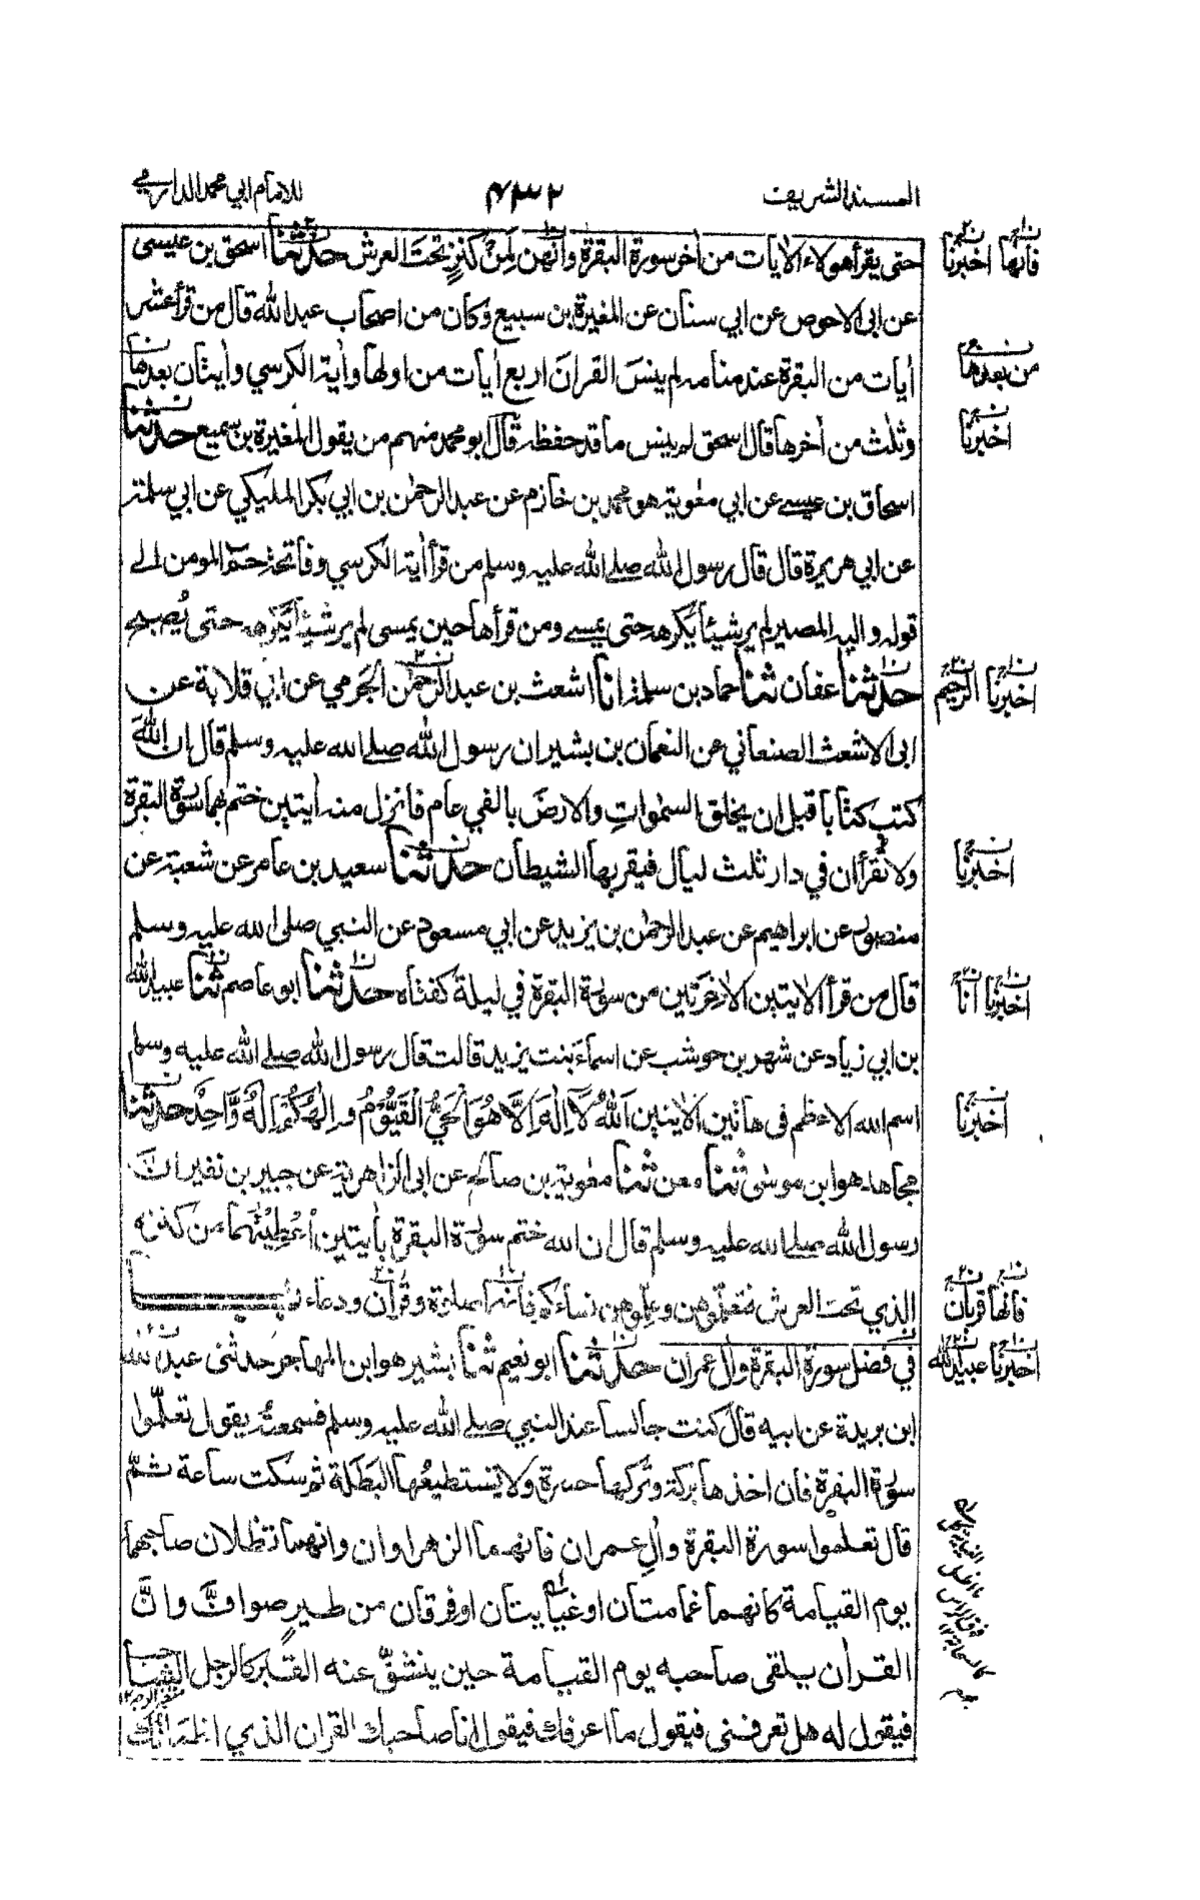 المسند الشريف ۴۳۲ للامام ابي محمد الدارمي
حتى يقرأ هولاء الاٰيات من اٰخر سورة البقرة وانهن لَمِنْ كنزٍ تحتَ العرش حدثنا اسحق بن عيسى
عن ابى الاحوص عن ابي سنان عن المغيرة بن سبيع وكان من اصحاب عبد الله قال من قرأ عشر
اٰيات من البقرة عند منامه لم ينسَ القراٰنَ اربع اٰيات من اولها واٰية الكرسي واٰيتان بعدها
وثلٰث من اٰخرها قال اسحق لم ينس ما قد حفظ قال ابو محمد منهم من يقول المغيرة بن سميع حدثنا
اسحاق بن عيسے عن ابي معٰوية هو محمد بن خازم عن عبد الرحمٰن بن ابي بكر المليكي عن ابي سلمة
عن ابي هريرة قال قال رسول الله صلے الله عليه وسلم من قرأ اٰية الكرسي وفاتحة حٰمٓ المومن الى
قوله واليه المصير لم ير شيئًا يكرهه حتى يمسے ومن قرأها حين يمسى لم ير شيئًا يكرهه حتى يُصبح
حدثنا عفان ثنا حماد بن سلمة انا اشعث بن عبد الرحمٰن الجَرمي عن ابي قلابة عن
ابى الاشعث الصنعاني عن النعمان بن بشير ان رسول الله صلے الله عليه وسلم قال ان اللهَ
كتب كتٰبا قبل ان يخلق السمٰواتِ والارضَ بالفي عام فانزل منه اٰيتين ختم بهما سورة البقرة
ولا تُقرأان في دار ثلث ليال فيقربها الشيطان حدثنا سعيد بن عامر عن شعبة عن
منصور عن ابراهيم عن عبد الرحمٰن بن يزيد عن ابي مسعود عن النبي صلى الله عليه وسلم
قال من قرأ الاٰيتين الاٰخرتين من سورة البقرة في ليلة كفتاه حدثنا ابو عاصم ثنا عبيد الله
بن ابي زياد عن شهر بن حوشب عن اسماءَ بنت يزيد قالت قال رسول الله صلے الله عليه وسلم
اسم الله الاعظم فى هاتين الاٰيتين اَللهُ لَآ اِلٰهَ اِلَّا هُوَ الْحَيُّ الْقَيُّوْمُ واِلٰهُكُمْ اِلٰهٌ وَّاحِدٌ حدثنا
مجاهد هو ابن موسٰى ثنا معن ثنا معٰوية بن صالح عن ابى الزاهرية عن جبير بن نفير ان
رسول الله صلے الله عليه وسلم قال ان الله ختم سورة البقرة باٰيتين اُعْطِيْتُهما من كنزه
الذي تحت العرش فتعلّموهن وعلِّموهن نساءكم فانهما صلوة وقراٰن ودعاء باب
في فضل سورة البقرة واٰل عمران حدثنا ابو نعيم ثنا بشير هو ابن المهاجر حدثنى عبد الله
ابن بريدة عن ابيه قال كنت جالسا عند النبي صلے الله عليه وسلم فسمعته يقول تعلّموا
سورة البقرة فان اخذها بركة وتركها حسرة ولا يستطيعُها البَطَلَة ثم سكت ساعة ثمّ
قال تعلموا سورة البقرة واٰلِ عمران فانهما الزهراوان وانهما تظلان صاحبهما
يوم القيامة كانهما غمامتان او غيايتان او فرقان من طيرٍ صوافّ وانّ
القراٰن يلقى صاحبه يوم القيامة حين ينشقّ عنه القبر كالرجل الشاحب
فيقول له هل تعرفنى فيقول ما اعرفك فيقول انا صاحبك القراٰن الذي اظمأتك
فانها اخبرنا
من بعدها
اخبرنا
اخبرنا الرحيم
اخبرنا
اخبرنا انا
اخبرنا
فانها قربان
اخبرنا عبيد الله